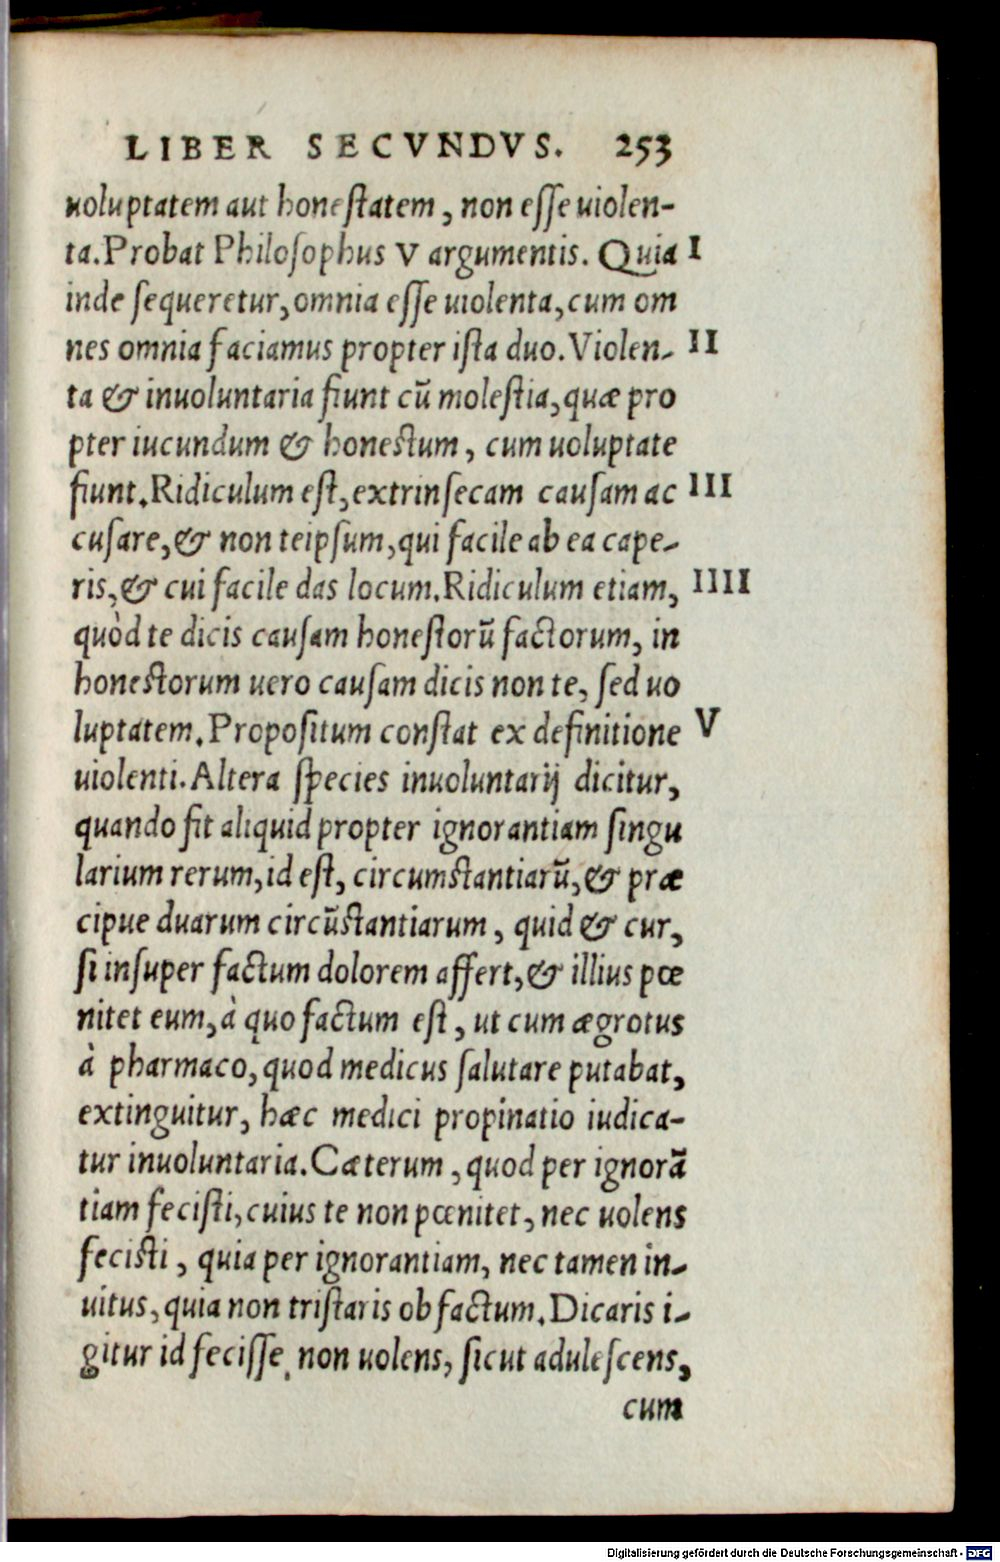 LIBER SECVNDVS. 253
uoluptatem aut honestatem, non esse uiolen-
ta. Probat Philosophus V argumentis. Quia I
inde sequeretur, omnia esse uiolenta, cum om
nes omnia faciamus propter ista duo. Violen- II
ta & inuoluntaria fiunt cũ molestia, quæ pro
pter iucundum & honestum, cum uoluptate
fiunt. Ridiculum est, extrinsecam causam ac III
cusare, & non teipsum, qui facile ab ea cape-
ris, & cui facile das locum. Ridiculum etiam, IIII
quòd te dicis causam honestorũ factorum, in
honestorum uero causam dicis non te, sed uo
luptatem. Propositum constat ex definitione V
uiolenti. Altera species inuoluntarij dicitur,
quando fit aliquid propter ignorantiam singu
larium rerum, id est, circumstantiarũ, & præ
cipue duarum circũstantiarum, quid & cur,
si insuper factum dolorem affert, & illius pœ
nitet eum, à quo factum est, ut cum ægrotus
à pharmaco, quod medicus salutare putabat,
extinguitur, hæc medici propinatio iudica-
tur inuoluntaria. Cæterum, quod per ignorã
tiam fecisti, cuius te non pœnitet, nec uolens
fecisti, quia per ignorantiam, nec tamen in-
uitus, quia non tristaris ob factum. Dicaris i-
gitur id fecisse, non uolens, sicut adulescens,
cum
Digitalisierung gefördert durch die Deutsche Forschungsgemeinschaft - DFG